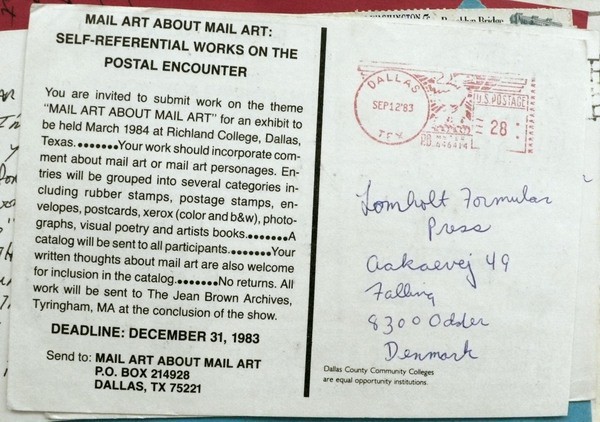 MAIL ART ABOUT MAIL ART:
SELF-REFERENTIAL WORKS ON THE
POSTAL ENCOUNTER
You are invited to submit work on the theme
"MAIL ART ABOUT MAIL ART" for an exhibit to
be held March 1984 at Richland College, Dallas,
Texas.●●●●●●●●Your work should incorporate com-
ment about mail art or mail art personages. En-
tries will be grouped into several categories in-
cluding rubber stamps, postage stamps, en-
velopes, postcards, xerox (color and b&w), photo-
graphs, visual poetry and artists books.●●●●●●●●A
catalog will be sent to all participants.●●●●●●●●Your
written thoughts about mail art are also welcome
for inclusion in the catalog.●●●●●●●●No returns. All
work will be sent to The Jean Brown Archives,
Tyringham, MA at the conclusion of the show.
DEADLINE: DECEMBER 31, 1983
Send to: MAIL ART ABOUT MAIL ART
P.O. BOX 214928
DALLAS, TX 75221
DALLAS
SEP 12'83
TEX
U.S. POSTAGE
28
P.B.
Lomholt Formular
Press
Aakaevej 49
Falling
8300 Odder
Denmark
Dallas County Community Colleges
are equal opportunity institutions.